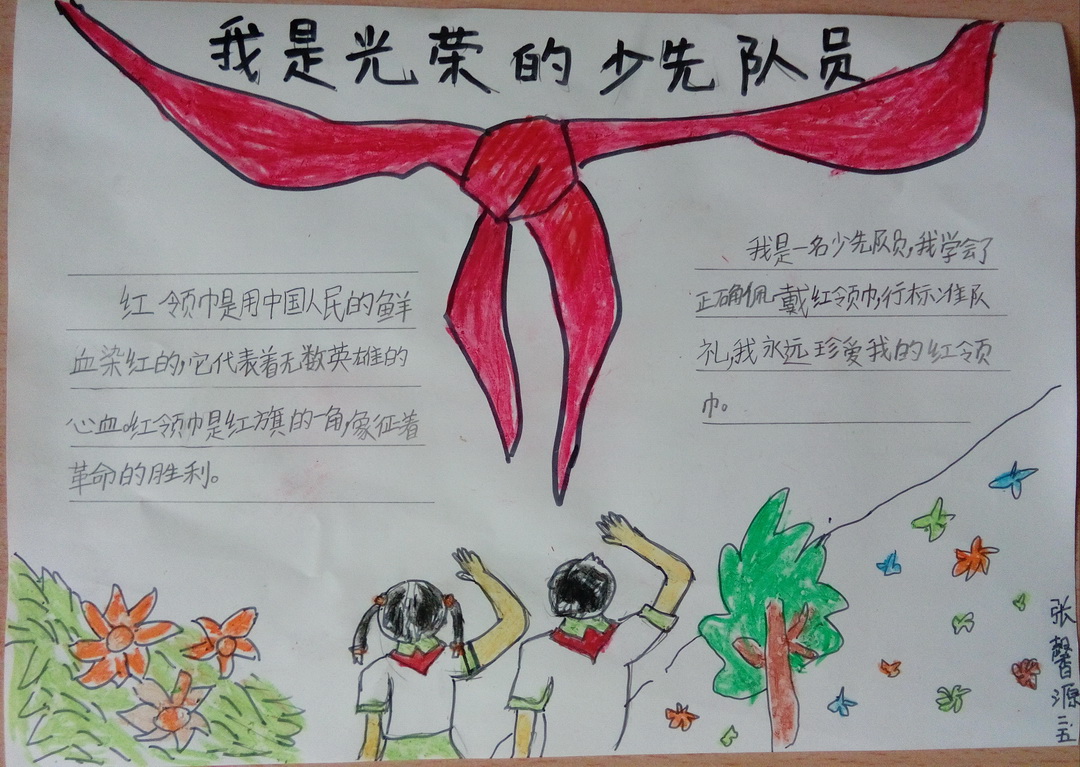 我是光荣的少先队员
红领巾是用中国人民的鲜
血染红的,它代表着无数英雄的
心血。红领巾是红旗的一角,象征着
革命的胜利。
我是一名少先队员,我学会了
正确佩戴红领巾,行标准队
礼,我永远珍爱我的红领
巾。
张馨源二.五